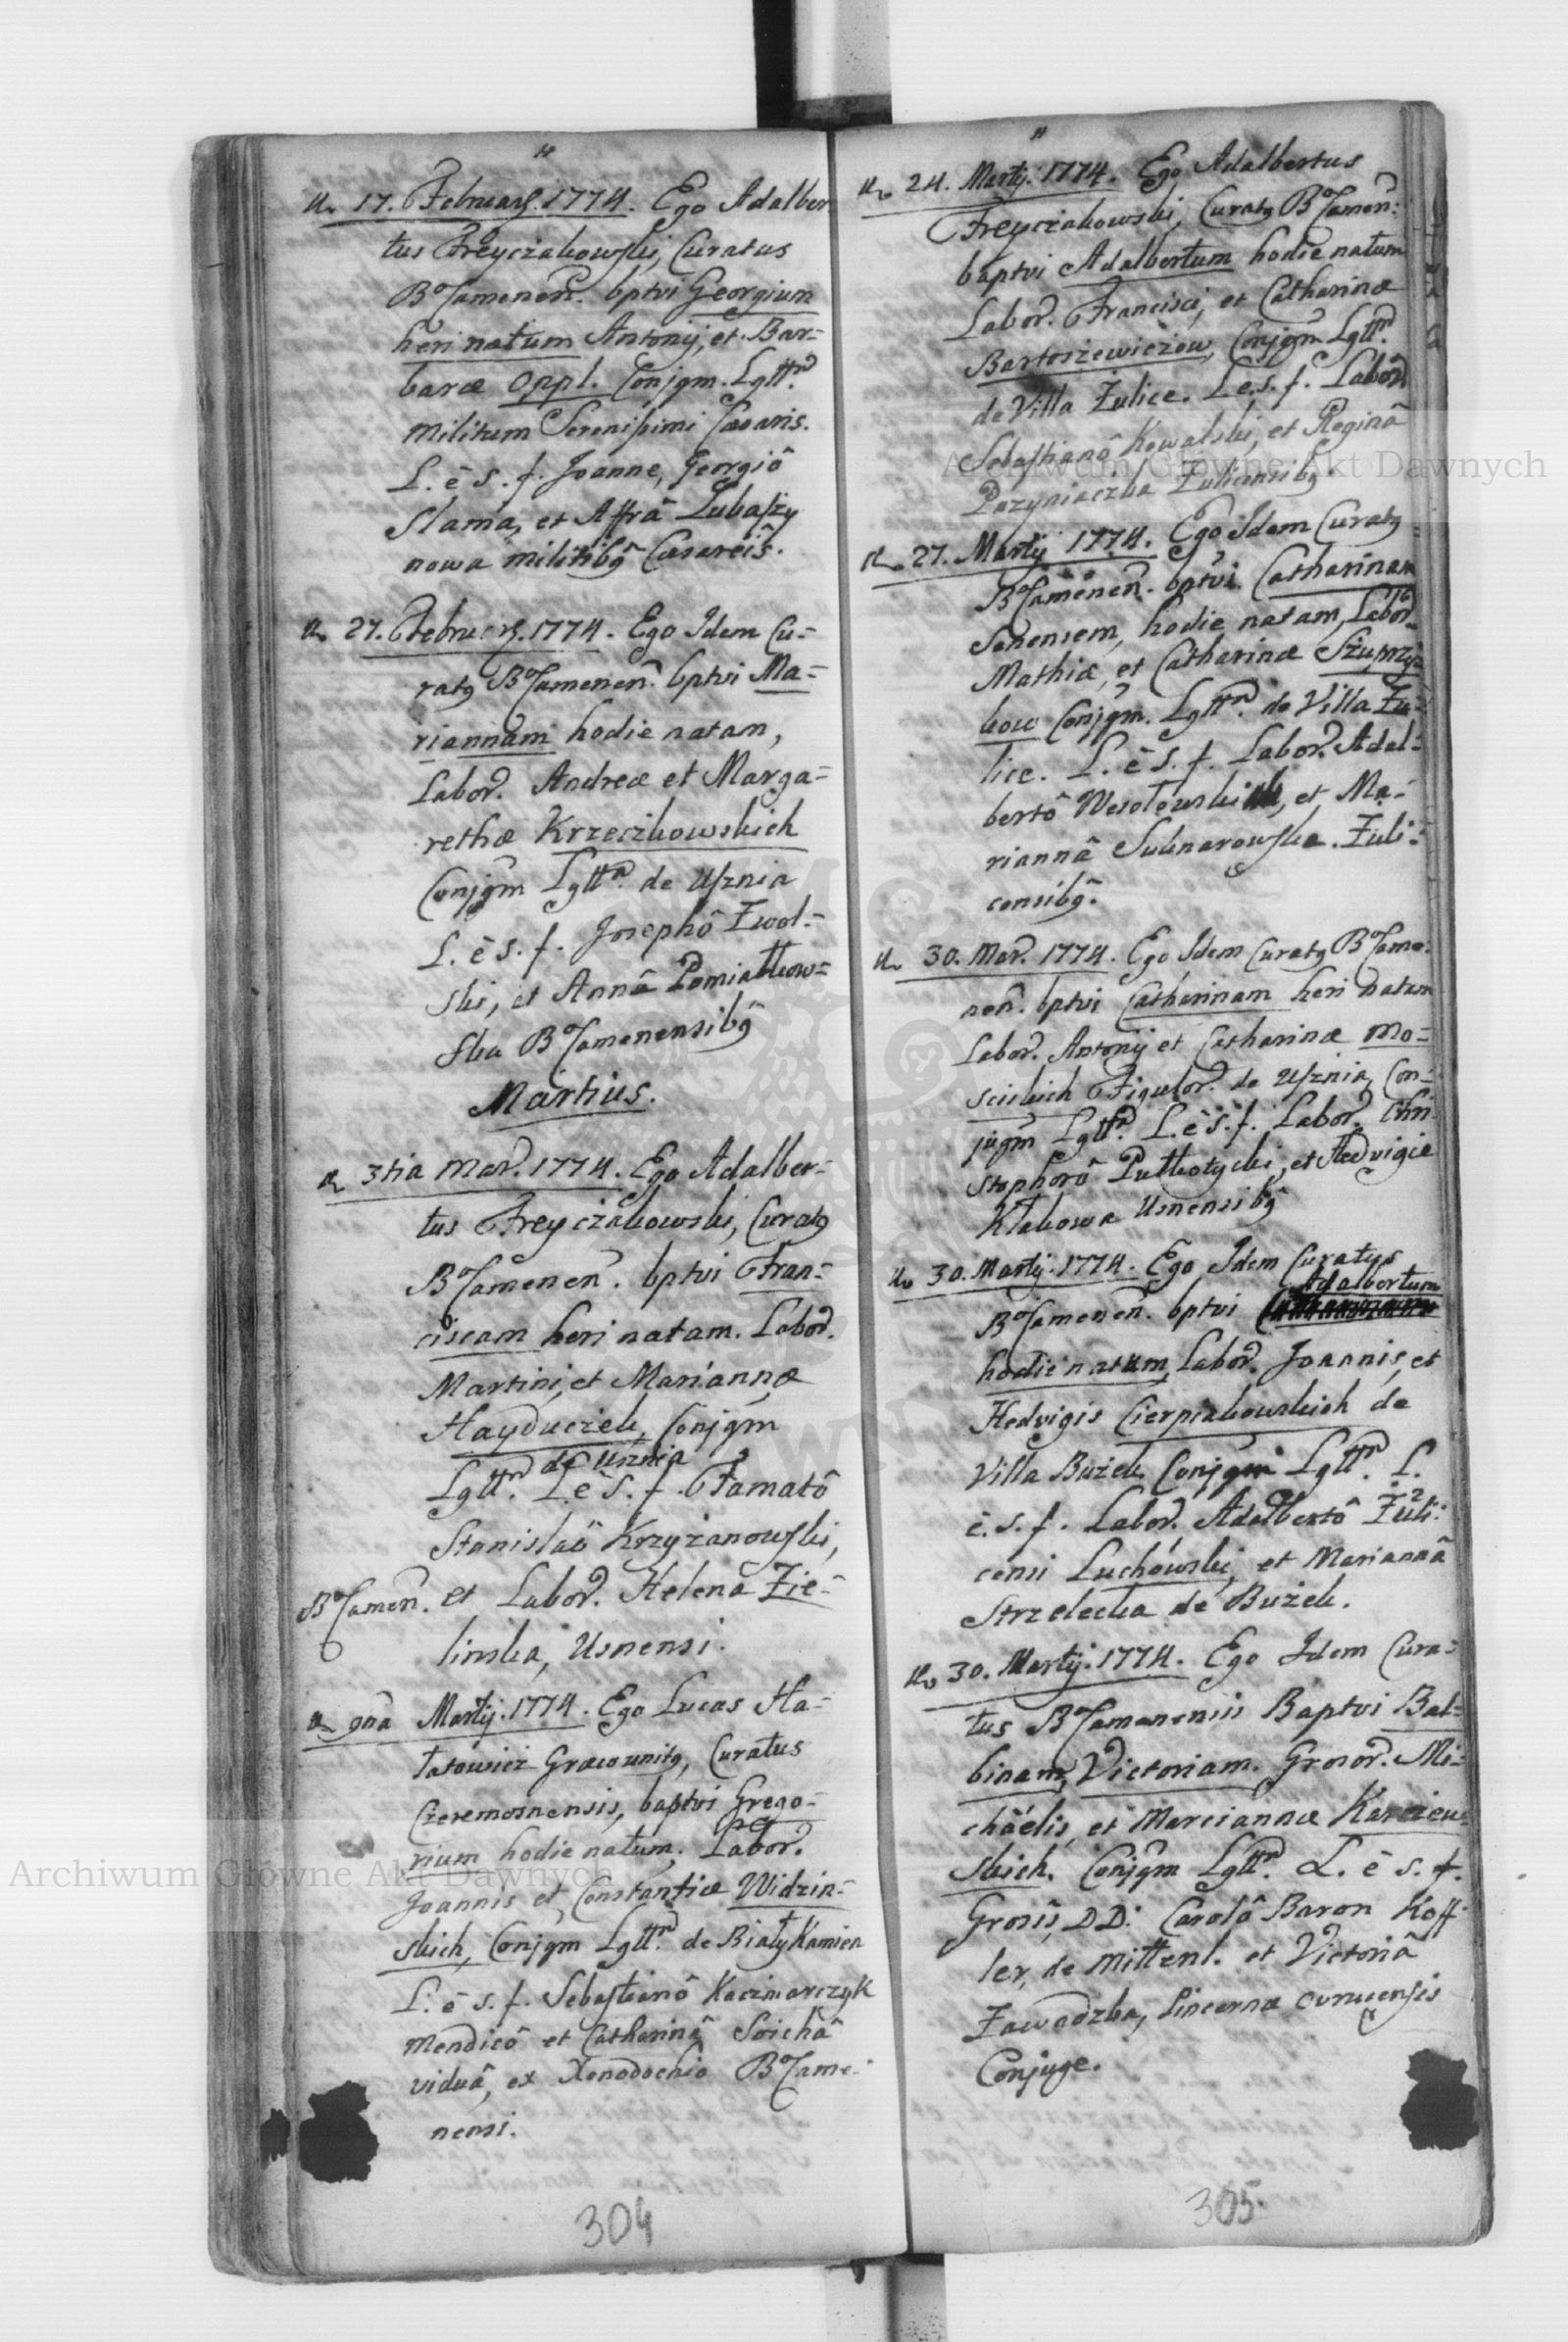 17. Februarij. 1774. Ego Adalber
tus Freyczakowski, Curatus
BCamenen. bptvi Georgium
heri natum Antonij, et Bar=
barae Oppl. Conjgm. Lgttr.
Militum Serenissimi Caesaris.
L. è S. f. Joanne, Georgiô
Slama, et Affrâ Lubaszy
nowa militibg Caesareis.
27. Februarij. 1774. Ego Idem Cu=
ratg BCamenen. bptvi Ma=
riannam hodie natam,
Labor. Andreae et Marga=
rethae Krzeczkowskich
Conjgm Lgttr. de Usznia
L. è S. f. Josephô Zwol=
ski, et Annâ Pomiatkow=
ska BCamenensibg
Martius.
3tia Mar. 1774. Ego Adalber=
tus Freyczakowski, Curatg
BCamenen. bptvi Fran=
ciscam heri natam. Labor.
Martini, et Mariannae
Hayduczek, Conjgm
de Usznia
Lgttr. L. è S. f. Famatô
Stanislaô Krzyżanowski,
BCamen. et Labor. Helenâ Zie=
linska, Usnensi.
9na Martij. 1774. Ego Lucas Ha=
łatowicz Graecounitg, Curatus
Czeremosnensis, baptvi Grego=
rium hodie natum, Labor.
Joannis et Constantiae Widzin=
skich, Conjgm Lgttr. de BiałyKamien
L. è S. f. Sebastianô Kaczmarczyk
Mendicô et Catharinâ Soichâ
viduâ, ex Xenodochio BCame=
nensi.
304
24. Martij. 1774. Ego Adalbertus
Freyczakowski, Curatg BCamen:
baptvi Adalbertum hodie natum
Labor. Francisci, et Catharinae
Bartoszewiczow, Conjgm Lgttr.
de Villa Żulice. L. è. S. f. Labor
Sebastianô Kowalski, et Reginâ
Pazyniaczka Żulicensibg.
27. Martij 1774. Ego Idem Curatg
BCamenen. bptvi Catharinam
Senensem, hodie natam, Labor.
Mathiae, et Catharinae
kow Conjgm. Lgttr. de Villa Żu=
lice. L. è S. f. Labor. Adal=
bertô Wesołowski, et Ma=
riannâ Suknarowska. Żuli=
censibg.
30. Mar. 1774. Ego Idem Curatg BCame=
nen. bptvi Catharinam heri natam
Labor. Antonij et Catharinae Mo=
scickich Figulor. de Usznia, Con=
jugm Lgttr. L. è S. f. Labor. Chri
stophorô Putkotycki, et Hedvigie
Kłakowa Usnensibg
30. Martij. 1774. Ego Idem Curatus
Adalbertum
BCamenen. bptvi
hodie natum, Labor. Joannis, et
Hedvigis Cierpiakowskich de
Villa Bużek Conjgm Lgttr. L.
è. S. f. Labor. Adalbertô Żuli=
censi Luchowski, et Mariannâ
Strzelecka de Bużek.
30. Martij. 1774. Ego Idem Cura=
tus BCamenensis Baptvi Bal=
binam, Victoriam. Grosor. Mi=
chaëlis, et Mariannae Karczew
skich. Conjgm Lgttr. L. è S. f.
Grosis, DD: Carolô Baron Koff
ler, de Mittenl. et Victoriâ
Zawadzka, Pincernae Ovrucensis
Conjuge.
305.
Archiwum Główne Akt Dawnych
Archiwum Główne Akt Dawnych